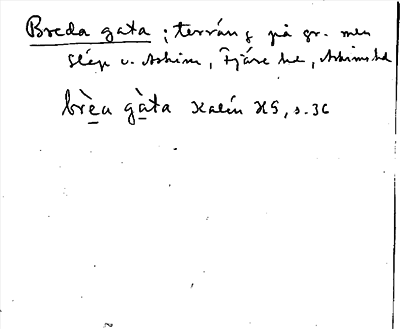 Breda gata; terräng på gr. mellan
Släp o. Askim, Fjäre hd, Askims hd
brè̱a gà̱ta Kalén HS, s. 36